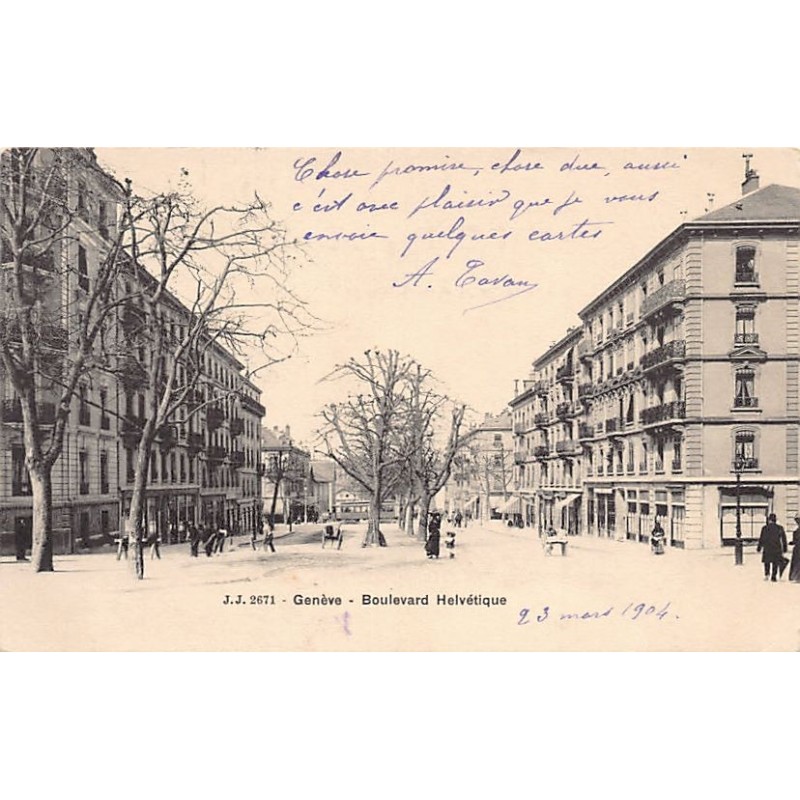 Chose promise, chose due, aussi
c'est avec plaisir que je vous
envoie quelques cartes
A. Tavan
J.J. 2671 - Genève - Boulevard Helvétique
23 mars 1904.